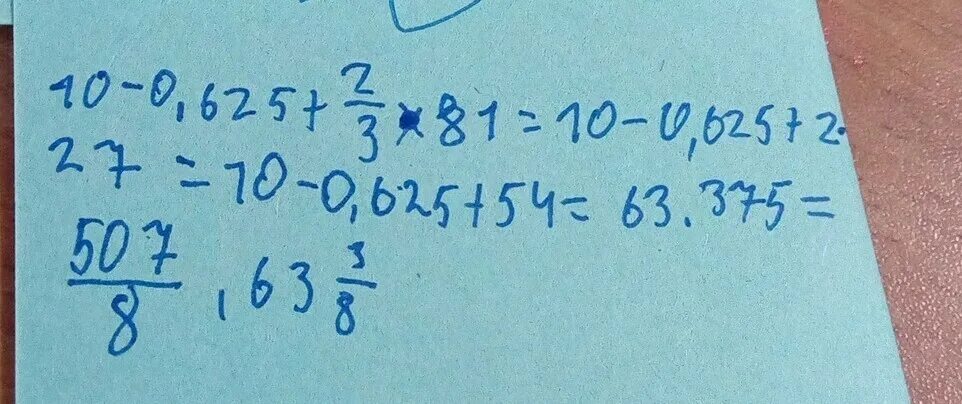 10-0,625+\frac{2}{3}×81=10-0,625+2·
27=10-0,625+54=63.375=
\frac{507}{8}, 63\frac{3}{8}